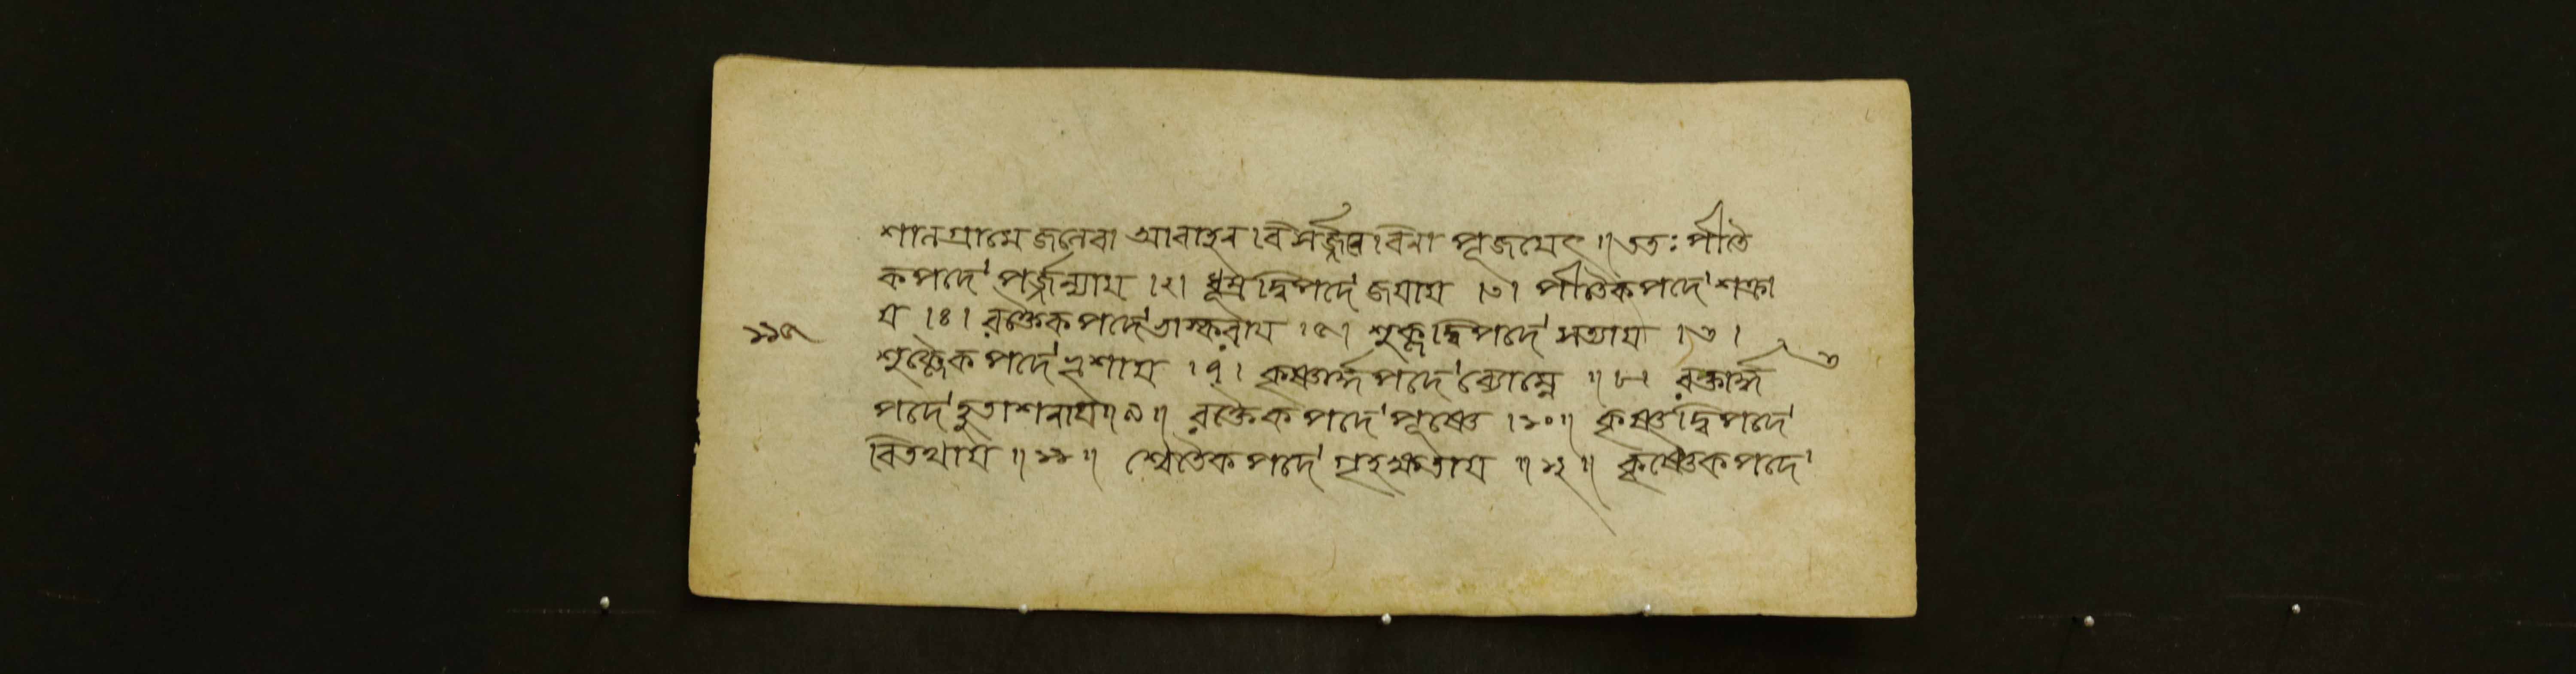 শালগ্রামে জলেবা আবাহন বিসর্জ্জনবিনা পূজয়েৎ ॥ ততঃ পীতৈ
কপদে পর্জ্জন্যায় ।২। ধূম্রদ্বিপদে জয়ায় ।৩। পীতৈকপদে শক্রা
য় ।৪। রক্তৈকপদে ভাস্করায় ।৫। শুক্লদ্বিপদে সত্যায় ।৬।
১১৫
শুক্লৈকপদে ভৃশায় ।৭। কৃষ্ণার্দ্ধপদে ব্যোম্নে ॥৮। রক্তার্দ্ধ
পদে হুতাশনায় ॥৯॥ রক্তৈকপদে পূষ্ণে ।১০॥ কৃষ্ণদ্বিপদে
বিতথায় ॥১১॥ শ্বেতৈকপদে গৃহক্ষতায় ॥১২॥ কৃষ্ণৈকপদে